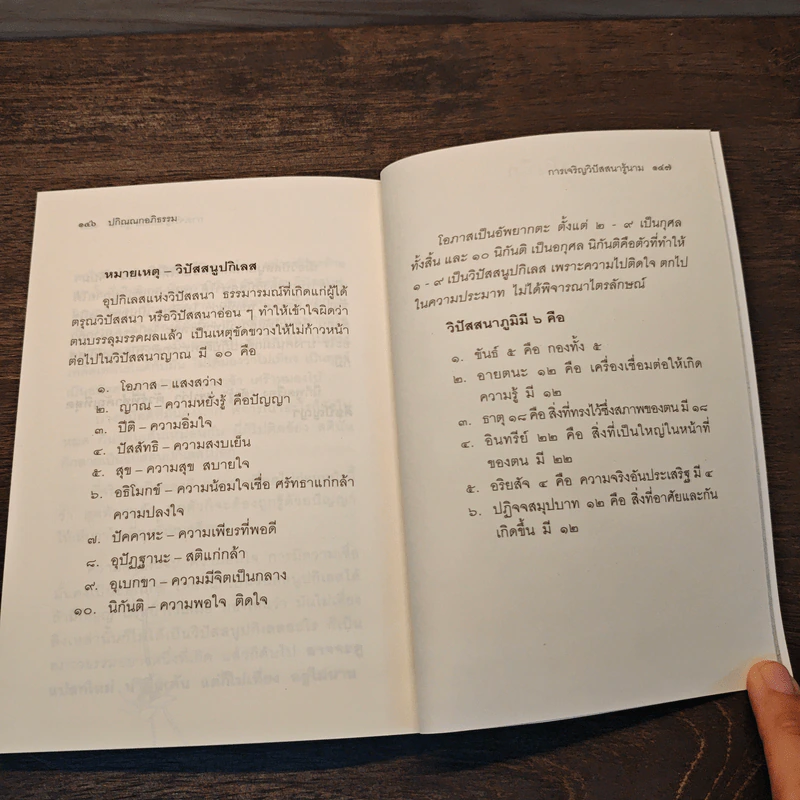 ๑๔๖ ปกิณณกอภิธรรม
หมายเหตุ – วิปัสสนูปกิเลส
อุปกิเลสแห่งวิปัสสนา ธรรมารมณ์ที่เกิดแก่ผู้ได้
ตรุณวิปัสสนา หรือวิปัสสนาอ่อน ๆ ทำให้เข้าใจผิดว่า
ตนบรรลุมรรคผลแล้ว เป็นเหตุขัดขวางให้ไม่ก้าวหน้า
ต่อไปในวิปัสสนาญาณ มี ๑๐ คือ
๑. โอภาส – แสงสว่าง
๒. ญาณ – ความหยั่งรู้ คือปัญญา
๓. ปีติ – ความอิ่มใจ
๔. ปัสสัทธิ – ความสงบเย็น
๕. สุข – ความสุข สบายใจ
๖. อธิโมกข์ – ความน้อมใจเชื่อ ศรัทธาแก่กล้า
ความปลงใจ
๗. ปัคคาหะ – ความเพียรที่พอดี
๘. อุปัฏฐานะ – สติแก่กล้า
๙. อุเบกขา – ความมีจิตเป็นกลาง
๑๐. นิกันติ – ความพอใจ ติดใจ
การเจริญวิปัสสนารู้นาม ๑๔๗
โอภาสเป็นอัพยากตะ ตั้งแต่ ๒ - ๙ เป็นกุศล
ทั้งสิ้น และ ๑๐ นิกันติ เป็นอกุศล นิกันติคือตัวที่ทำให้
๑ - ๙ เป็นวิปัสสนูปกิเลส เพราะความไปติดใจ ตกไป
ในความประมาท ไม่ได้พิจารณาไตรลักษณ์
วิปัสสนาภูมิมี ๖ คือ
๑. ขันธ์ ๕ คือ กองทั้ง ๕
๒. อายตนะ ๑๒ คือ เครื่องเชื่อมต่อให้เกิด
ความรู้ มี ๑๒
๓. ธาตุ ๑๘ คือ สิ่งที่ทรงไว้ซึ่งสภาพของตน มี ๑๘
๔. อินทรีย์ ๒๒ คือ สิ่งที่เป็นใหญ่ในหน้าที่
ของตน มี ๒๒
๕. อริยสัจ ๔ คือ ความจริงอันประเสริฐ มี ๔
๖. ปฏิจจสมุปบาท ๑๒ คือ สิ่งที่อาศัยและกัน
เกิดขึ้น มี ๑๒